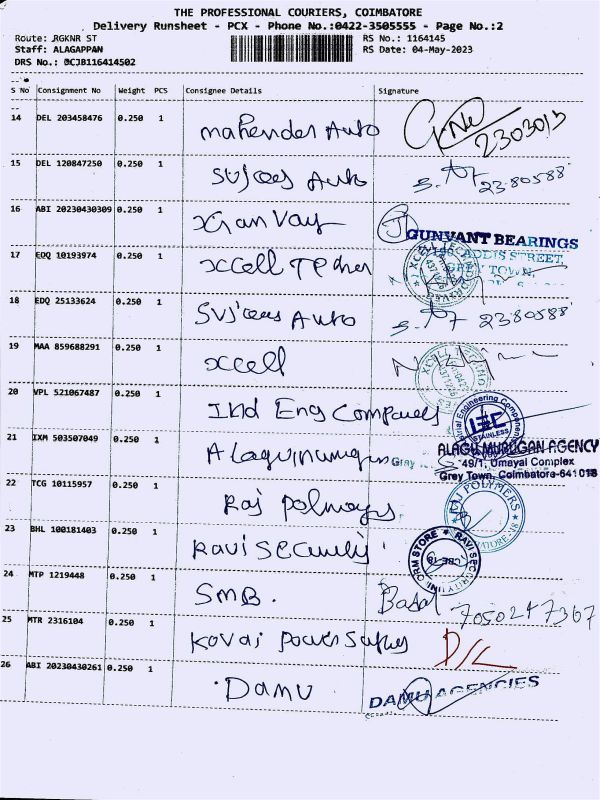 THE PROFESSIONAL COURIERS, COIMBATORE
Delivery Runsheet - PCX - Phone No.:0422-3505555 - Page No.:2
Route: RGKNR ST
RS No.: 1164145
Staff: ALAGAPPAN
RS Date: 04-May-2023
DRS No.: @CJB116414502
S No Consignment No Weight PCS Consignee Details Signature
14 DEL 203458476 0.250 1 Mahender Auto 2303013
15 DEL 120847250 0.250 1 Sujees Auto 2380588
16 ABI 20230430309 0.250 1
GUNVANT BEARINGS
ADDIS STREET,
GREY TOWN,
17 EDQ 10193974 0.250 1 Xcell Techer
18 EDQ 25133624 0.250 1 Sujees Auto 2380588
19 MAA 859688291 0.250 1 Xcell
20 VPL 521067487 0.250 1 Ind Eng Companees
IEC
STAINLESS
21 IXM 503507049 0.250 1 Alagumurugan
ALAGU MURUGAN AGENCY
49/1, Umayal Complex
Grey Town, Coimbatore-641018
22 TCG 10115957 0.250 1 Raj Polmays
POLYMERS
23 BHL 100181403 0.250 1 Ravi Security
RAVI SECURITY UNIFORM STORE
CBE-18
24 MTP 1219448 0.250 1 SMB. 7050247367
25 MTR 2316104 0.250 1 Kovai Power D/L
26 ABI 20230430261 0.250 1 Damu
DAMU AGENCIES